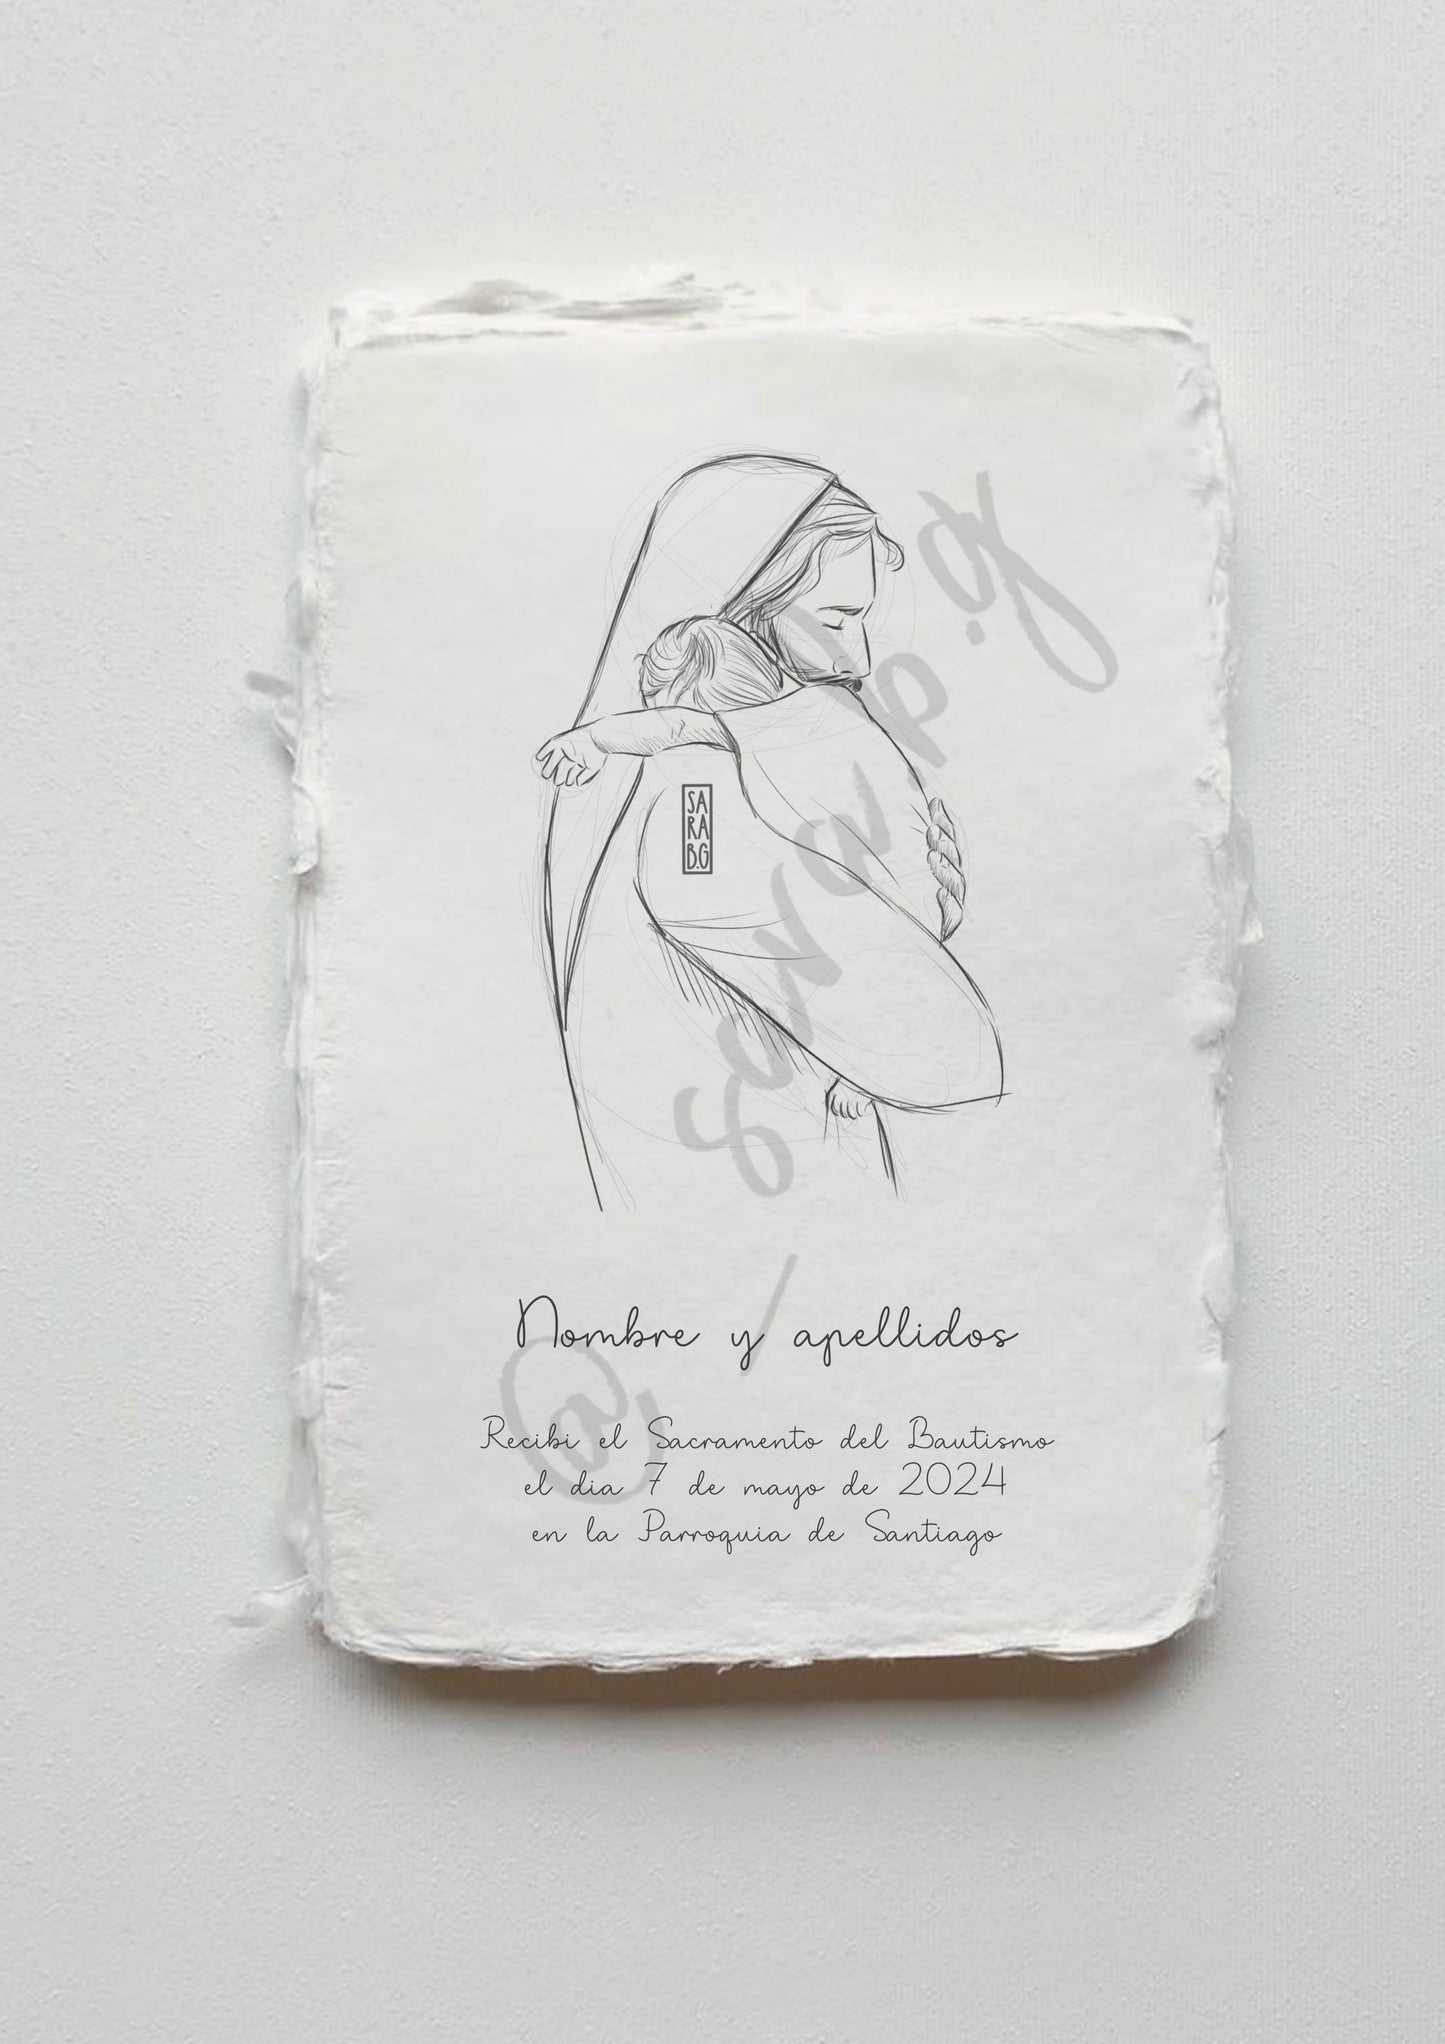 SA
RA
B.G
Nombre y apellidos
Recibi el Sacramento del Bautismo
el dia 7 de mayo de 2024
en la Parroquia de Santiago
@_sarab.g